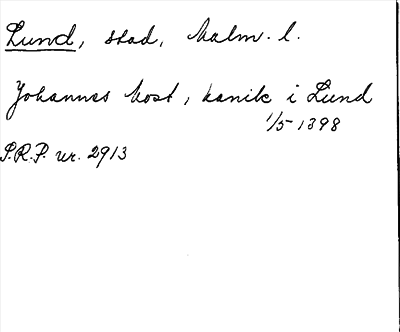 Lund, stad, Malm. l.
Johannes Most, kanik i Lund
1/5 1398
S.R.P. nr. 2913